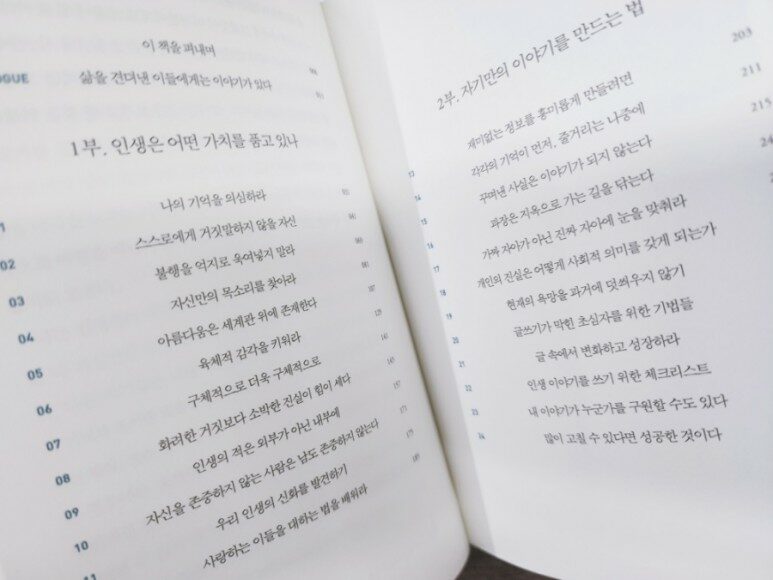 이 책을 펴내며
OGUE 삶을 견뎌낸 이들에게는 이야기가 있다
1부. 인생은 어떤 가치를 품고 있나
나의 기억을 의심하라
스스로에게 거짓말하지 않을 자신
02 불행을 억지로 욱여넣지 말라
03 자신만의 목소리를 찾아라
04 아름다움은 세계관 위에 존재한다
05 육체적 감각을 키워라
06 구체적으로 더욱 구체적으로
07 화려한 거짓보다 소박한 진실이 힘이 세다
08 인생의 적은 외부가 아닌 내부에
09 자신을 존중하지 않는 사람은 남도 존중하지 않는다
10 우리 인생의 신화를 발견하기
11 사랑하는 이들을 대하는 법을 배워라
2부. 자기만의 이야기를 만드는 법 203
재미없는 정보를 흥미롭게 만들려면 211
각각의 기억이 먼저, 줄거리는 나중에 215
꾸며낸 사실은 이야기가 되지 않는다
과장은 지옥으로 가는 길을 닦는다
가짜 자아가 아닌 진짜 자아에 눈을 맞춰라
개인의 진실은 어떻게 사회적 의미를 갖게 되는가
현재의 욕망을 과거에 덧씌우지 않기
글쓰기가 막힌 초심자를 위한 기법들
글 속에서 변화하고 성장하라
인생 이야기를 쓰기 위한 체크리스트
내 이야기가 누군가를 구원할 수도 있다
많이 고칠 수 있다면 성공한 것이다